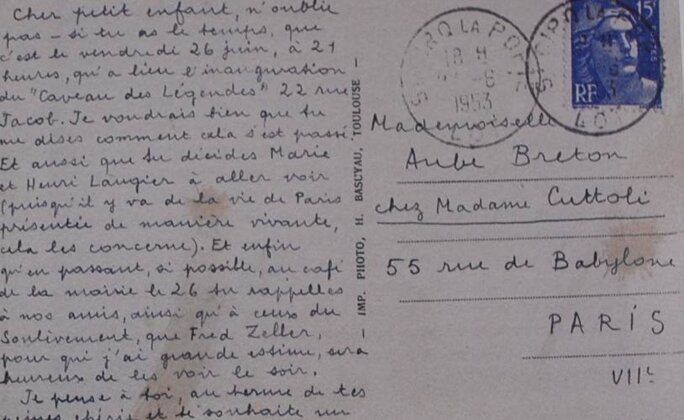 Cher petit enfant, n'oublie
pas – si tu as le temps, que
c'est le vendredi 26 juin, à 21
heures, qu'a lieu l'inauguration
du "Caveau des Légendes" 22 rue
Jacob. Je voudrais bien que tu
me dises comment cela s'est passé.
Et aussi que tu décides Marie
et Henri Laugier à aller voir
(puisqu'il y va de la vie de Paris
présentée de manière vivante,
cela les concerne). Et enfin
qu'en passant, si possible, au café
de la mairie le 26 tu rappelles
à nos amis, ainsi qu'à ceux du
Soulèvement, que Fred Zeller,
pour qui j'ai grande estime, sera
heureux de les voir le soir.
Je pense à toi, au terme de tes
chérie et te souhaite un
— IMP. PHOTO, H. BASCYAU, TOULOUSE —
LA POPIE
18 H
6
1953
LOT
15F
RF
LOT
Mademoiselle
Aube Breton
chez Madame Cuttoli
55 rue de Babylone
PARIS
VIIe